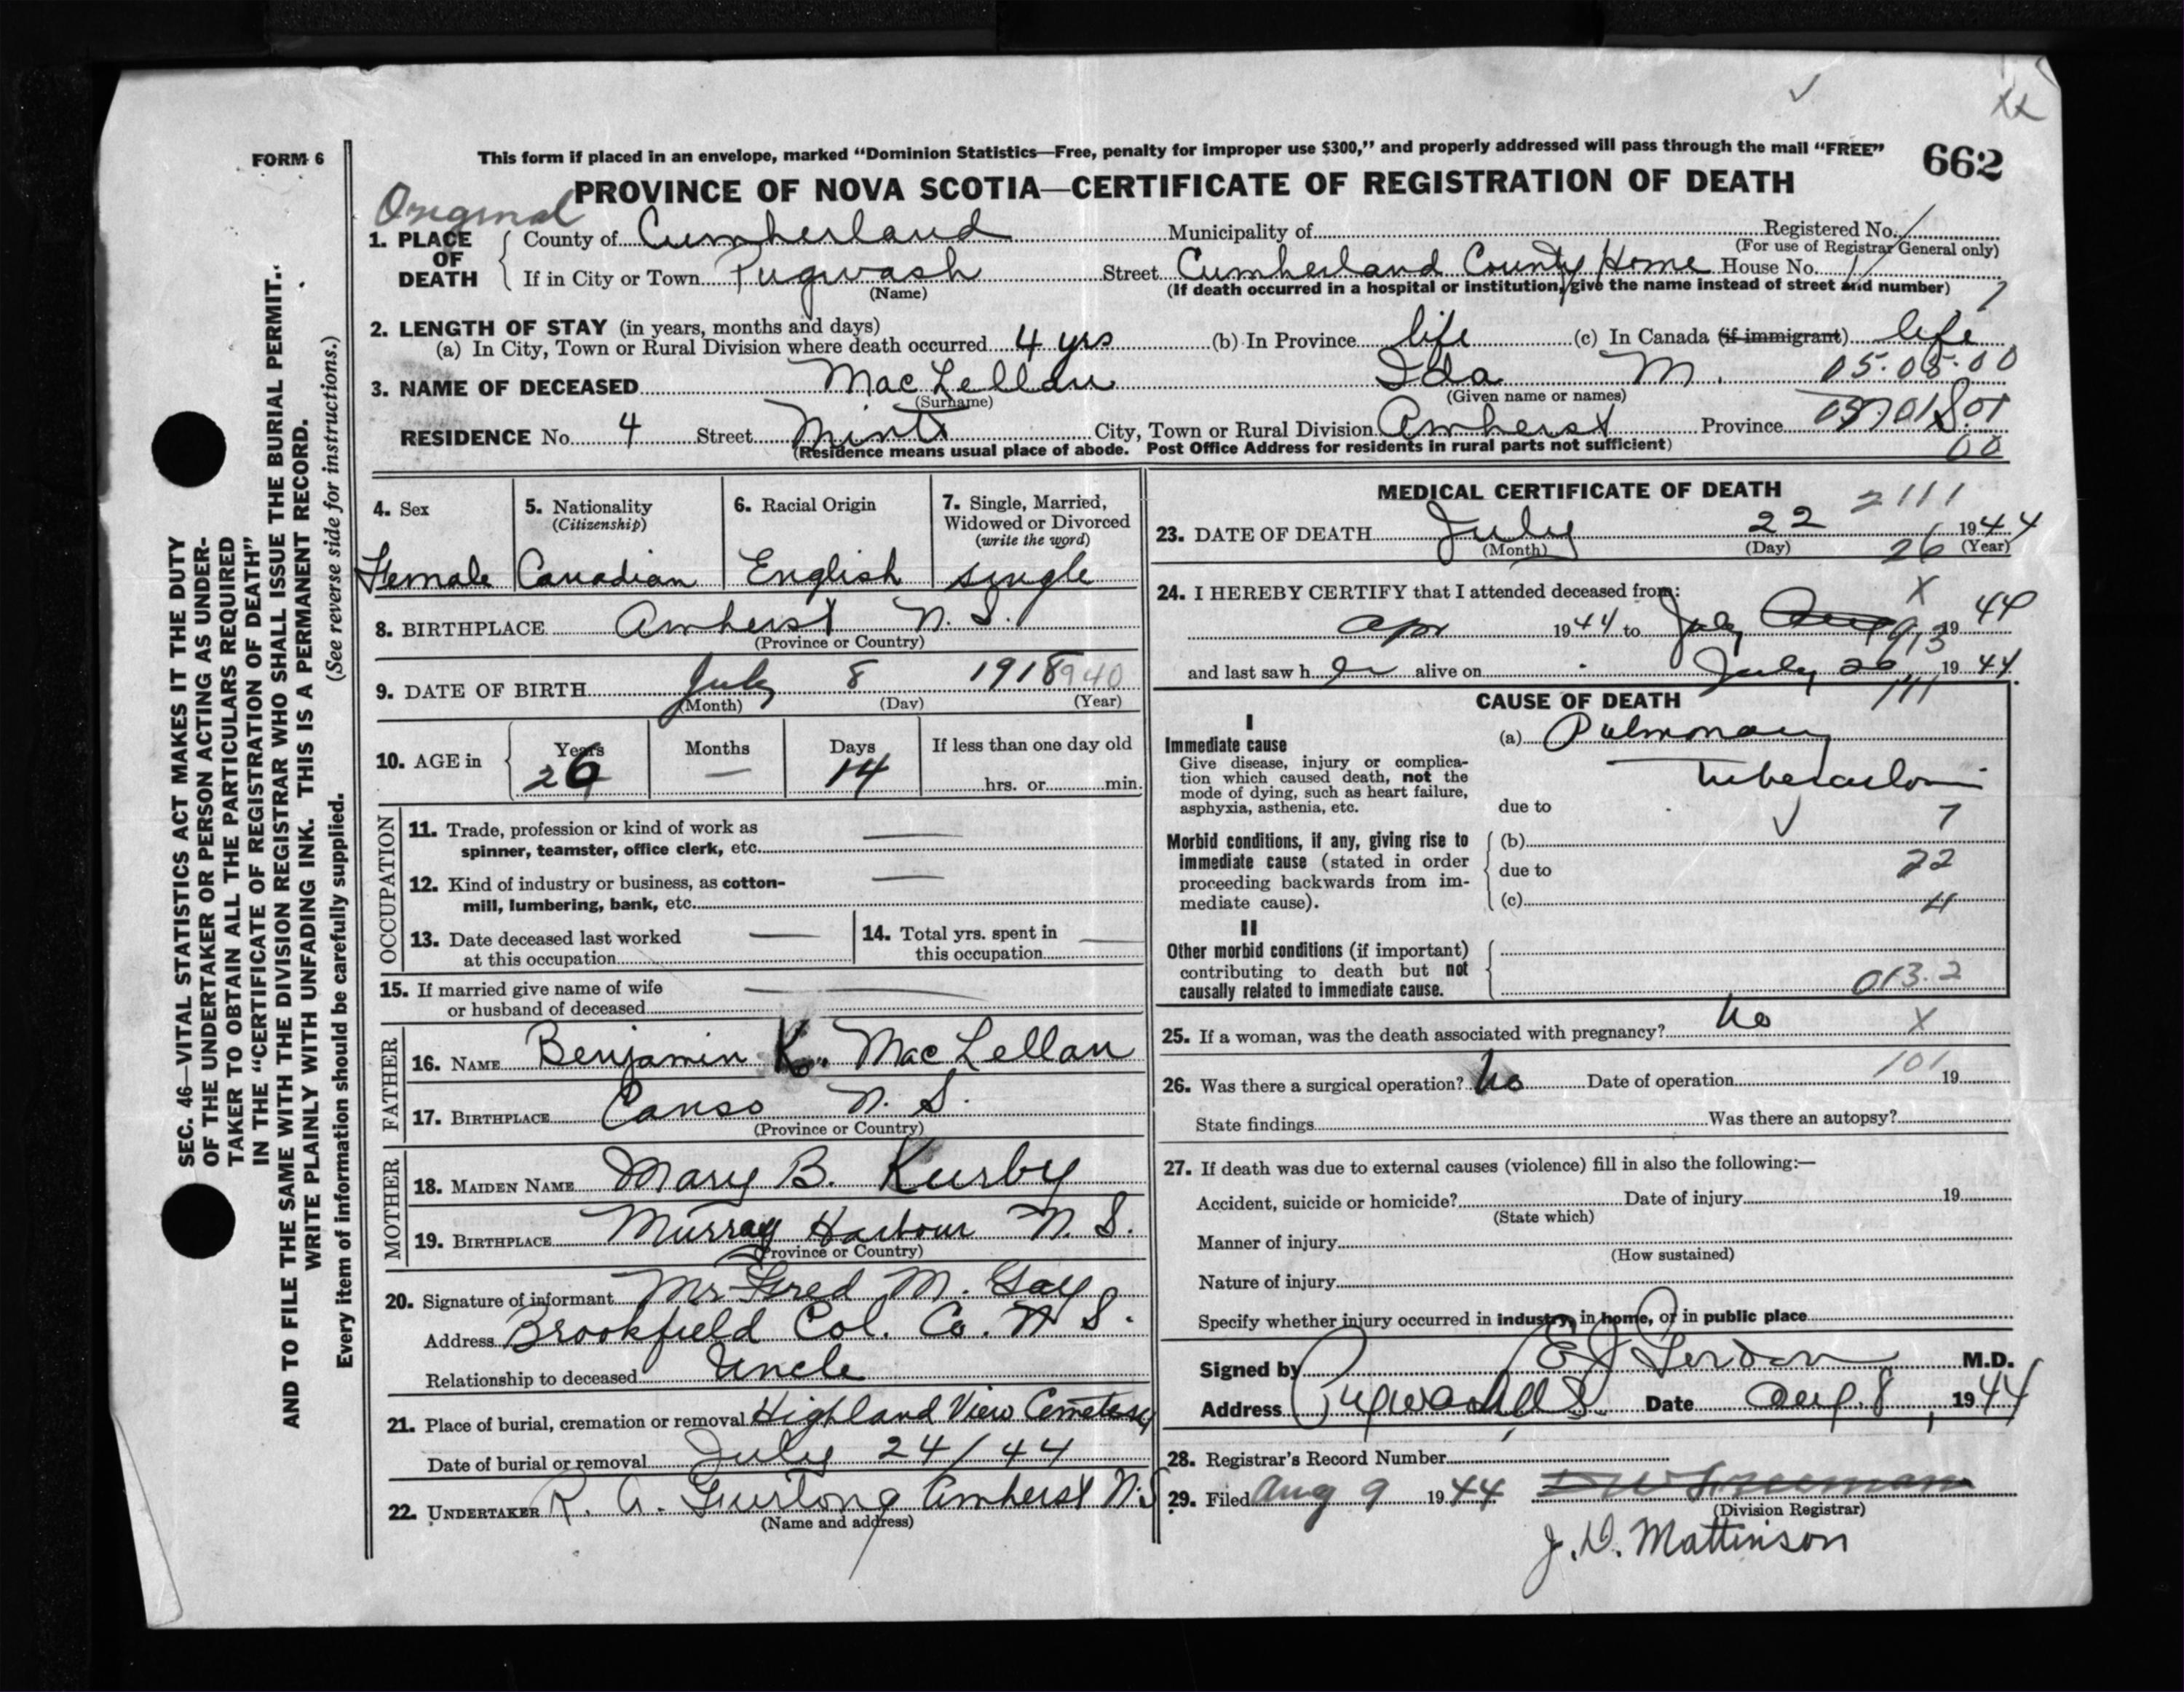 FORM 6
This form if placed in an envelope, marked “Dominion Statistics—Free, penalty for improper use $300,” and properly addressed will pass through the mail “FREE”
662
Original
PROVINCE OF NOVA SCOTIA—CERTIFICATE OF REGISTRATION OF DEATH
1. PLACE OF DEATH
County of Cumberland Municipality of Registered No.
(For use of Registrar General only)
If in City or Town Pugwash Street Cumberland County Home House No.
(Name) (If death occurred in a hospital or institution, give the name instead of street and number)
2. LENGTH OF STAY (in years, months and days)
(a) In City, Town or Rural Division where death occurred 4 yrs (b) In Province life (c) In Canada (if immigrant) life
3. NAME OF DECEASED MacLellan Ida M. 05.05.00
(Surname) (Given name or names)
RESIDENCE No. 4 Street Mint City, Town or Rural Division Amherst Province
(Residence means usual place of abode. Post Office Address for residents in rural parts not sufficient) 00
4. Sex
Female
5. Nationality
(Citizenship)
Canadian
6. Racial Origin
English
7. Single, Married,
Widowed or Divorced
(write the word)
single
8. BIRTHPLACE Amherst N. S.
(Province or Country)
9. DATE OF BIRTH July 8 1918 940
(Month) (Day) (Year)
10. AGE in Years Months Days If less than one day old
26 — 14 hrs. or min.
OCCUPATION
11. Trade, profession or kind of work as —
spinner, teamster, office clerk, etc.
12. Kind of industry or business, as cotton- —
mill, lumbering, bank, etc.
13. Date deceased last worked —
at this occupation
14. Total yrs. spent in —
this occupation
15. If married give name of wife —
or husband of deceased
FATHER
16. NAME Benjamin K. MacLellan
17. BIRTHPLACE Canso N. S.
(Province or Country)
MOTHER
18. MAIDEN NAME Mary B. Kurby
19. BIRTHPLACE Murray Harbour N. S.
(Province or Country)
20. Signature of informant Mr Fred M. Gay
Address Brookfield Col. Co. N S.
Relationship to deceased Uncle
21. Place of burial, cremation or removal Highland View Cemetery
Date of burial or removal July 24/44
22. UNDERTAKER R. A. Furlong Amherst N.S
(Name and address)
MEDICAL CERTIFICATE OF DEATH
2111
23. DATE OF DEATH July 22 1944
(Month) (Day) 26 (Year)
24. I HEREBY CERTIFY that I attended deceased from: X
Apr 1944 to July 913 1944
and last saw h er alive on July 20 1944
CAUSE OF DEATH 111
I
Immediate cause
Give disease, injury or complica-
tion which caused death, not the
mode of dying, such as heart failure,
asphyxia, asthenia, etc.
(a) Pulmonary
Tuberculosis
due to 7
Morbid conditions, if any, giving rise to
immediate cause (stated in order
proceeding backwards from im-
mediate cause).
(b)
due to 22
(c) 4
II
Other morbid conditions (if important)
contributing to death but not
causally related to immediate cause.
013.2
25. If a woman, was the death associated with pregnancy? No X
26. Was there a surgical operation? No Date of operation 101 19
State findings Was there an autopsy?
27. If death was due to external causes (violence) fill in also the following:—
Accident, suicide or homicide? Date of injury 19
(State which)
Manner of injury
(How sustained)
Nature of injury
Specify whether injury occurred in industry, in home, or in public place
Signed by M.D.
Address Pugwash N S Date Aug. 8, 1944
28. Registrar's Record Number
29. Filed Aug 9 1944
(Division Registrar)
J. D. Mattinson
SEC. 46—VITAL STATISTICS ACT MAKES IT THE DUTY
OF THE UNDERTAKER OR PERSON ACTING AS UNDER-
TAKER TO OBTAIN ALL THE PARTICULARS REQUIRED
IN THE “CERTIFICATE OF REGISTRATION OF DEATH”
AND TO FILE THE SAME WITH THE DIVISION REGISTRAR WHO SHALL ISSUE THE BURIAL PERMIT.
WRITE PLAINLY WITH UNFADING INK. THIS IS A PERMANENT RECORD.
(See reverse side for instructions.)
Every item of information should be carefully supplied.